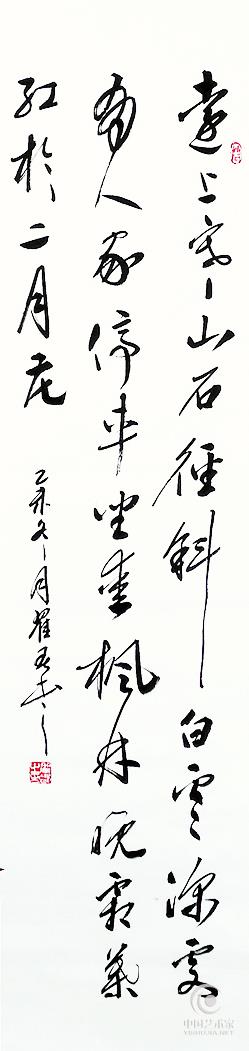 遠上寒山石徑斜白雲深處
有人家停車坐愛楓林晚霜葉
紅於二月花
中国艺术家